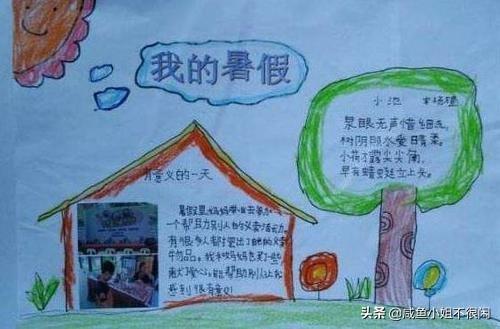 我的暑假
小池
泉眼无声惜细流,
树阴照水爱晴柔。
小荷才露尖尖角,
早有蜻蜓立上头。
有意义的一天
暑假里妈妈带我去参加
一个帮助别人的义卖活动
有很多人都
我和妈妈也买了一些
能帮助别人让我
感到很有意义!
头条 @咸鱼小姐不很闲